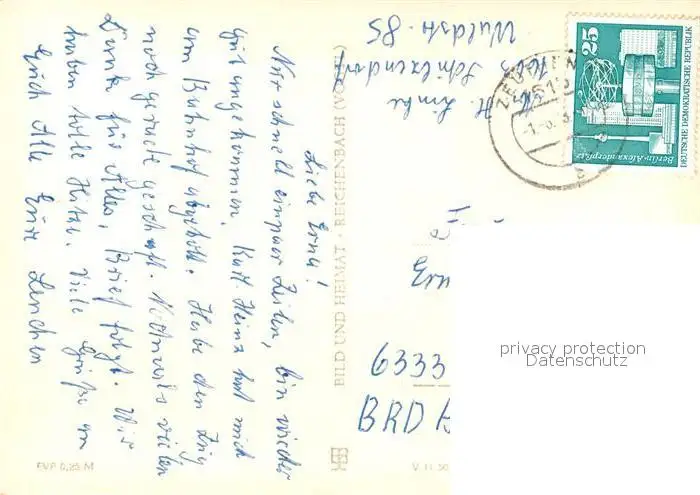 Liebe Erna!
Nur schnell ein paar Zeilen, bin wieder
gut angekommen, Karl-Heinz hat mich
am Bahnhof abgeholt. Habe den Zug
noch gerade geschaft. Nochmals vielen
Dank für Alles, Brief folgt. Wir
haben tolle Hitze. Viele Grüße an
Euch Alle Eure Lenchen
BILD UND HEIMAT · REICHENBACH (VOGTL)
EVP 0,25 M
V 11 50
Waldstr. 85
6333
BRD
25
DEUTSCHE DEMOKRATISCHE REPUBLIK
Berlin-Alexanderplatz
privacy protection
Datenschutz